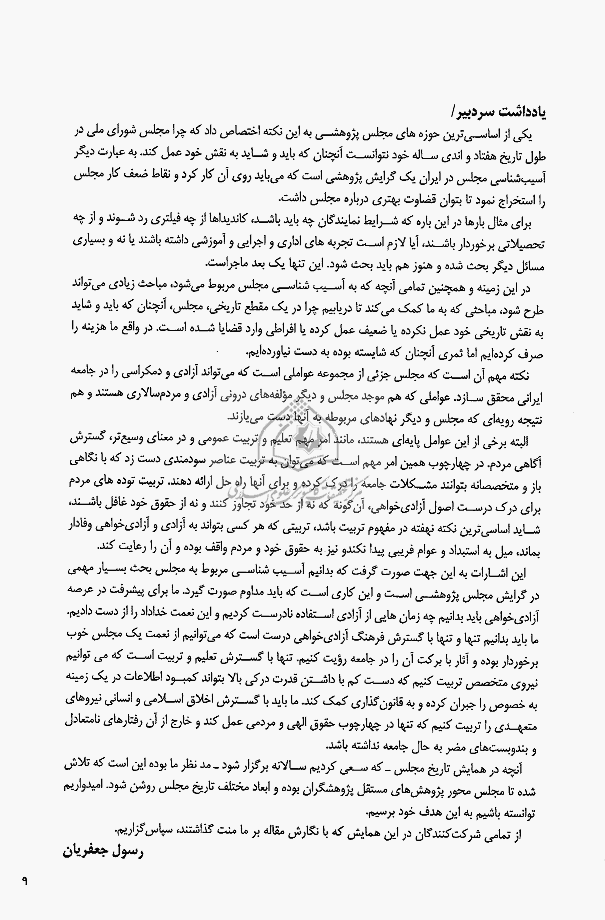 یادداشت سردبیر/
یکی از اساسی‌ترین حوزه های مجلس پژوهشی به این نکته اختصاص داد که چرا مجلس شورای ملی در
طول تاریخ هفتاد و اندی ساله خود نتوانست آنچنان که باید و شاید به نقش خود عمل کند. به عبارت دیگر
آسیب‌شناسی مجلس در ایران یک گرایش پژوهشی است که می‌باید روی آن کار کرد و نقاط ضعف کار مجلس
را استخراج نمود تا بتوان قضاوت بهتری درباره مجلس داشت.
برای مثال بارها در این باره که شرایط نمایندگان چه باید باشد، کاندیداها از چه فیلتری رد شوند و از چه
تحصیلاتی برخوردار باشند، آیا لازم است تجربه های اداری و اجرایی و آموزشی داشته باشند یا نه و بسیاری
مسائل دیگر بحث شده و هنوز هم باید بحث شود. این تنها یک بعد ماجراست.
در این زمینه و همچنین تمامی آنچه که به آسیب شناسی مجلس مربوط می‌شود، مباحث زیادی می‌تواند
طرح شود، مباحثی که به ما کمک می‌کند تا دریابیم چرا در یک مقطع تاریخی، مجلس، آنچنان که باید و شاید
به نقش تاریخی خود عمل نکرده یا ضعیف عمل کرده یا افراطی وارد قضایا شده است. در واقع ما هزینه را
صرف کرده‌ایم اما ثمری آنچنان که شایسته بوده به دست نیاورده‌ایم.
نکته مهم آن است که مجلس جزئی از مجموعه عواملی است که می‌تواند آزادی و دمکراسی را در جامعه
ایرانی محقق سازد. عواملی که هم موجد مجلس و دیگر مؤلفه‌های درونی آزادی و مردم‌سالاری هستند و هم
نتیجه رویه‌ای که مجلس و دیگر نهادهای مربوطه به آنها دست می‌یازند.
البته برخی از این عوامل پایه‌ای هستند، مانند امر مهم تعلیم و تربیت عمومی و در معنای وسیع‌تر، گسترش
آگاهی مردم. در چهارچوب همین امر مهم است که می‌توان به تربیت عناصر سودمندی دست زد که با نگاهی
باز و متخصصانه بتوانند مشکلات جامعه را درک کرده و برای آنها راه حل ارائه دهند. تربیت توده های مردم
برای درک درست اصول آزادی‌خواهی، آن‌گونه که نه از حد خود تجاوز کنند و نه از حقوق خود غافل باشند،
شاید اساسی‌ترین نکته نهفته در مفهوم تربیت باشد، تربیتی که هر کسی بتواند به آزادی و آزادی‌خواهی وفادار
بماند، میل به استبداد و عوام فریبی پیدا نکندو نیز به حقوق خود و مردم واقف بوده و آن را رعایت کند.
این اشارات به این جهت صورت گرفت که بدانیم آسیب شناسی مربوط به مجلس بحث بسیار مهمی
در گرایش مجلس پژوهشی است و این کاری است که باید مداوم صورت گیرد. ما برای پیشرفت در عرصه
آزادی‌خواهی باید بدانیم چه زمان هایی از آزادی استفاده نادرست کردیم و این نعمت خداداد را از دست دادیم.
ما باید بدانیم تنها و تنها با گسترش فرهنگ آزادی‌خواهی درست است که می‌توانیم از نعمت یک مجلس خوب
برخوردار بوده و آثار با برکت آن را در جامعه رؤیت کنیم. تنها با گسترش تعلیم و تربیت است که می توانیم
نیروی متخصص تربیت کنیم که دست کم با داشتن قدرت درکی بالا بتواند کمبود اطلاعات در یک زمینه
به خصوص را جبران کرده و به قانون‌گذاری کمک کند. ما باید با گسترش اخلاق اسلامی و انسانی نیروهای
متعهدی را تربیت کنیم که تنها در چهارچوب حقوق الهی و مردمی عمل کند و خارج از آن رفتارهای نامتعادل
و بندوبست‌های مضر به حال جامعه نداشته باشد.
آنچه در همایش تاریخ مجلس ـ که سعی کردیم سالانه برگزار شود ـ مد نظر ما بوده این است که تلاش
شده تا مجلس محور پژوهش‌های مستقل پژوهشگران بوده و ابعاد مختلف تاریخ مجلس روشن شود. امیدواریم
توانسته باشیم به این هدف خود برسیم.
از تمامی شرکت‌کنندگان در این همایش که با نگارش مقاله بر ما منت گذاشتند، سپاس‌گزاریم.
رسول جعفریان
۹